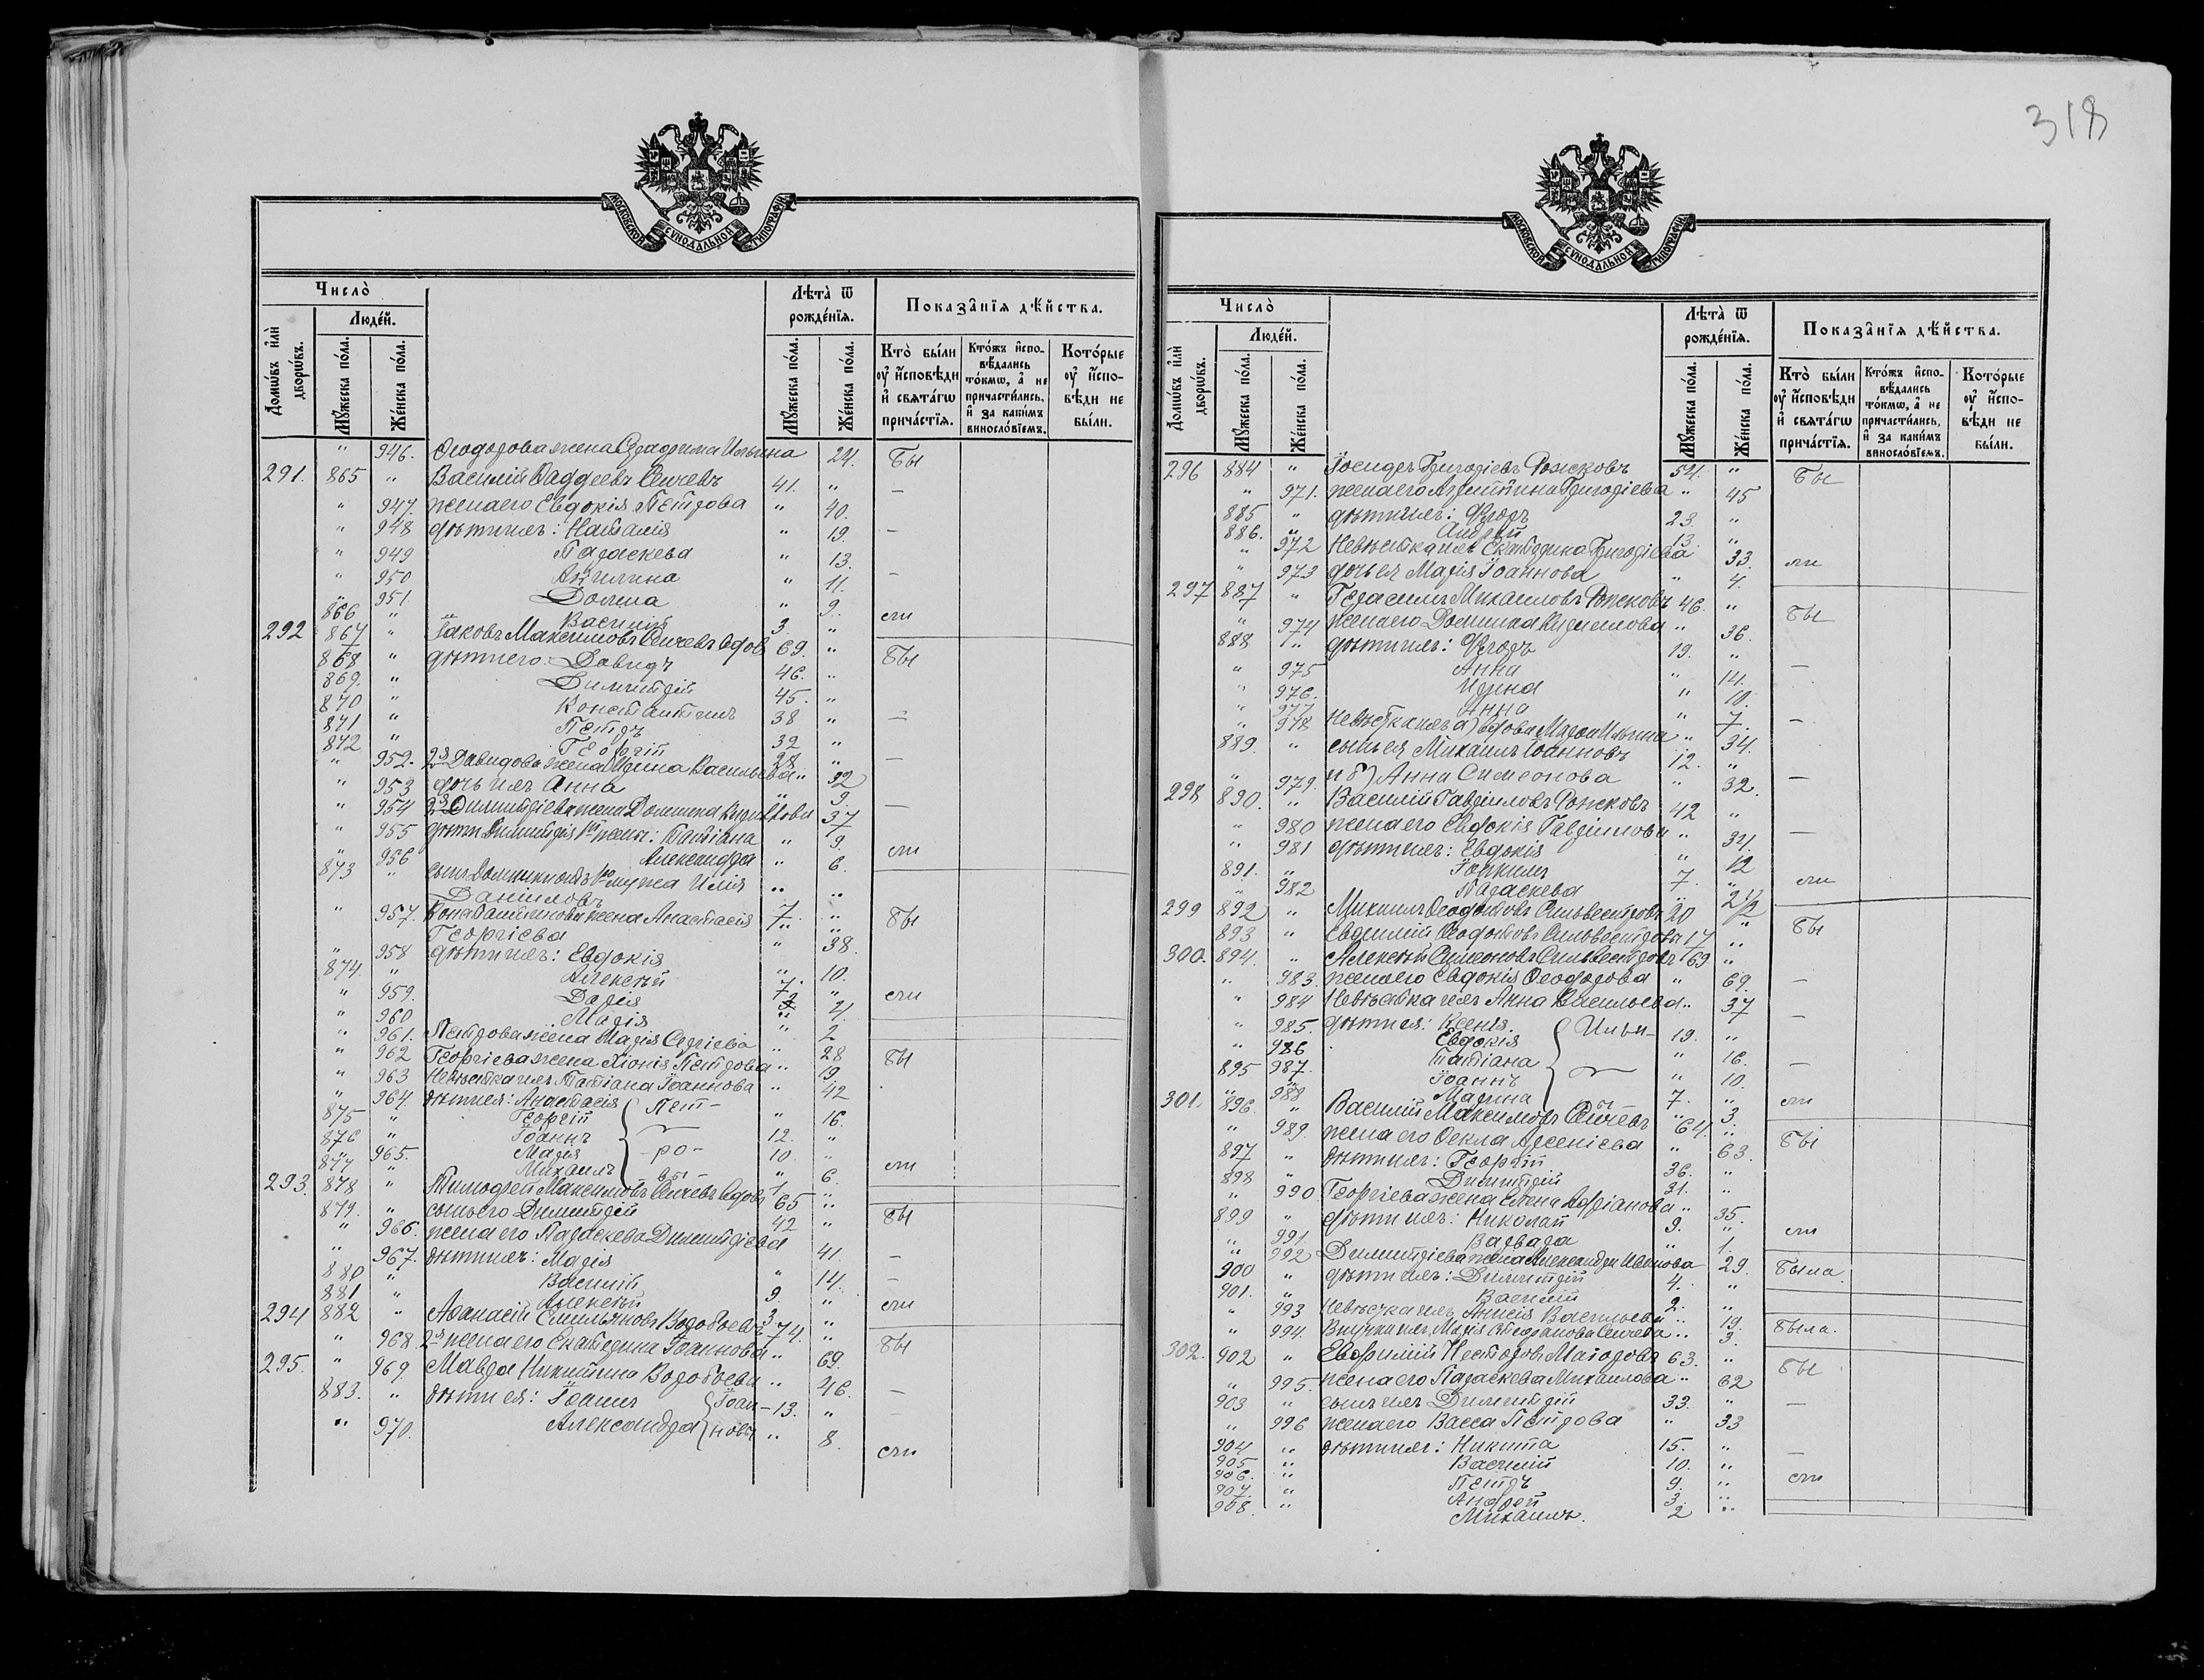 318
МОСКОВСКОЙ СѴНОДАЛЬНОЙ ТИПОГРАФІИ
Число̀
Домѡ́въ и҆лѝ дворѡ́въ.
Люде́й.
Мꙋ́жеска по́ла.
Же́нска по́ла.
Лѣ́та ѿ рожде́нїѧ.
Мꙋ́жеска по́ла.
Же́нска по́ла.
Показа̑нїѧ дѣ́йства.
Кто̀ бы́ли ᲂу҆ и҆сповѣди и҆ свѧта́гѡ прича́стїѧ.
Кто́жъ и҆спо-вѣ́дались то́кмѡ, а҆ не причасти́лись, и҆ за каки́мъ винословїемъ.
Кото́рые ᲂу҆ и҆спо-вѣди не бы́ли.
" 946. Ѳеодорова жена Серафима Ильина 24. бы
291. 865 " Василій Ѳаддеевъ Сычевъ 41. " –
" 947. жена его Евдокія Петрова " 40.
" 948 дѣти ихъ: Наталія " 19. –
" 949 Параскева " 13.
" 950 Акилина " 11. –
" 951 Домна " 9.
866 " Василій 3 " ли
292 867 " Іаковъ Максимовъ Сычевъ вдов 69. "
868 " дѣти его: Давидъ 46. " бы
869. " Димитрій 45. "
870 " Константинъ 38 " –
871 " Петръ 32 "
872 " Георгій 28 " –
" 952. 2я Давидова жена Ирина Васильева " 32
" 953 дочь ихъ Анна " 9. –
" 954 2я Димитріева жена Домника " 37
" 955 дѣти Димитрія 1й жены: Татіана " 9. ли
" 956 Александра " 6.
873 " сынъ Домники отъ 1го мужа Илія
Даніиловъ 7. "
" 957. Константинова жена Анастасія бы
Георгіева " 38.
" 958 дѣти ихъ: Евдокія " 10.
874. " Алексѣй 7. "
" 959. Дарія " 4. ли
" 960 Марія " 2
" 961. Петрова жена Марія Сергіева " 28
" 962 Георгіева жена Хіонія Петрова " 19 бы
" 963 Невѣстка ихъ Татіана Іоаннова " 42
" 964. дѣти ея: Анастасія Пет- " 16.
875 " Георгій 12. "
876 " Іоаннъ 10. "
" 965. Марія -ро- " 6.
877 " Михаилъ вы- 1 " ли
293. 878 " Тимофей Максимовъ Сычевъ вдовъ 65 "
879. " сынъ его Димитрій 42 " бы
" 966. жена его Параскева Димитріева " 41.
" 967. дѣти ихъ: Марія " 14. –
880 " Василій 9. " –
881 " Алексѣй 3 " ли
294 882 " Аѳанасій Емильяновъ Воробьевъ 74. "
" 968 2я жена его Екатерина Іоаннова " 69. бы
295. " 969 Мавра Никитина Воробьева " 46.
883. " дѣти ея: Іоаннъ Іоан- 13. " –
" 970. Александра новы " 8. ли
МОСКОВСКОЙ СѴНОДАЛЬНОЙ ТИПОГРАФІИ
Число̀
Домѡ́въ и҆лѝ дворѡ́въ.
Люде́й.
Мꙋ́жеска по́ла.
Же́нска по́ла.
Лѣ́та ѿ рожде́нїѧ.
Мꙋ́жеска по́ла.
Же́нска по́ла.
Показа̑нїѧ дѣ́йства.
Кто̀ бы́ли ᲂу҆ и҆сповѣди и҆ свѧта́гѡ прича́стїѧ.
Кто́жъ и҆спо-вѣ́дались то́кмѡ, а҆ не причасти́лись, и҆ за каки́мъ винословїемъ.
Кото́рые ᲂу҆ и҆спо-вѣди не бы́ли.
296 884 " Іосифъ Григоріевъ Рожковъ 54. " бы
" 971. жена его Григоріева " 45
885 " дѣти ихъ: Ѳеодоръ 23. "
886. " Андрей 13. "
" 972 Невѣстка ихъ Екатерина Григоріева " 33. ли
" 973 дочь ея Марія Іоаннова " 4.
297 887 " Герасимъ Михаиловъ Рожковъ 46. " бы
" 974 жена его Домника " 36.
888 " дѣти ихъ: Ѳеодоръ 19. "
" 975 Анна " 14. –
" 976. Ирина " 10.
" 977 Анна " 7. –
" 978 Невѣстка ихъ а) вдова Марѳа Ильина " 34.
889. " сынъ ея Михаилъ Іоанновъ 12. "
" 979. и б) Анна Симеонова " 32. –
298 890. " Василій Гавріиловъ Рожковъ 42 "
" 980 жена его Евдокія Гавріилова " 34. –
" 981 дѣти ихъ: Евдокія " 12
891. " Іоакимъ 7. " ли
" 982 Параскева " 2 1/2
299 892 " Михаилъ Ѳеодотовъ Сильвестровъ 20 " бы
893 " Евѳимій Ѳеодотовъ Сильвестровъ 17 "
300. 894. " Алексѣй Симеоновъ Сильвестровъ 69 "
" 983. жена его Евдокія Ѳеодорова " 69. –
" 984 Невѣстка ихъ Анна Васильева " 37
" 985. дѣти ея: Ксенія. Ильи- 19. " –
" 986 Евдокія " 16.
" 987. Татіана " 10. –
895 " Іоаннъ 7. "
" 988 Марина ны " 3. ли
301. 896. " Василій Максимовъ Сычевъ 64. "
" 989. жена его Ѳекла Арсеніева " 63. бы
897 " дѣти ихъ: Георгій 36. "
898 " Димитрій 31. "
" 990 Георгіева жена Елена Адріанова " 35.
899 " дѣти ихъ: Николай 9. " ли
" 991 Варвара " 1.
" 992 Димитріева жена Александра " 29. была
900 " дѣти ихъ: Димитрій 4. "
901. " Василій 2. "
" 993 Невѣстка ихъ Анисія Васильева " 19.
" 994. Внучка ихъ Марія Стефанова Сычева " 3. была.
302. 902 " Евѳимій Несторовъ Маіоровъ 63. " бы
" 995. жена его Параскева Михаилова " 62
903 " сынъ ихъ Димитрій 33. " –
" 996 жена его Васса Петрова " 33
904 " дѣти ихъ: Никита 15. " –
905 " Василій 10. "
906. " Петръ 9. " ли
907. " Андрей 3. "
908. " Михаилъ. 2 "